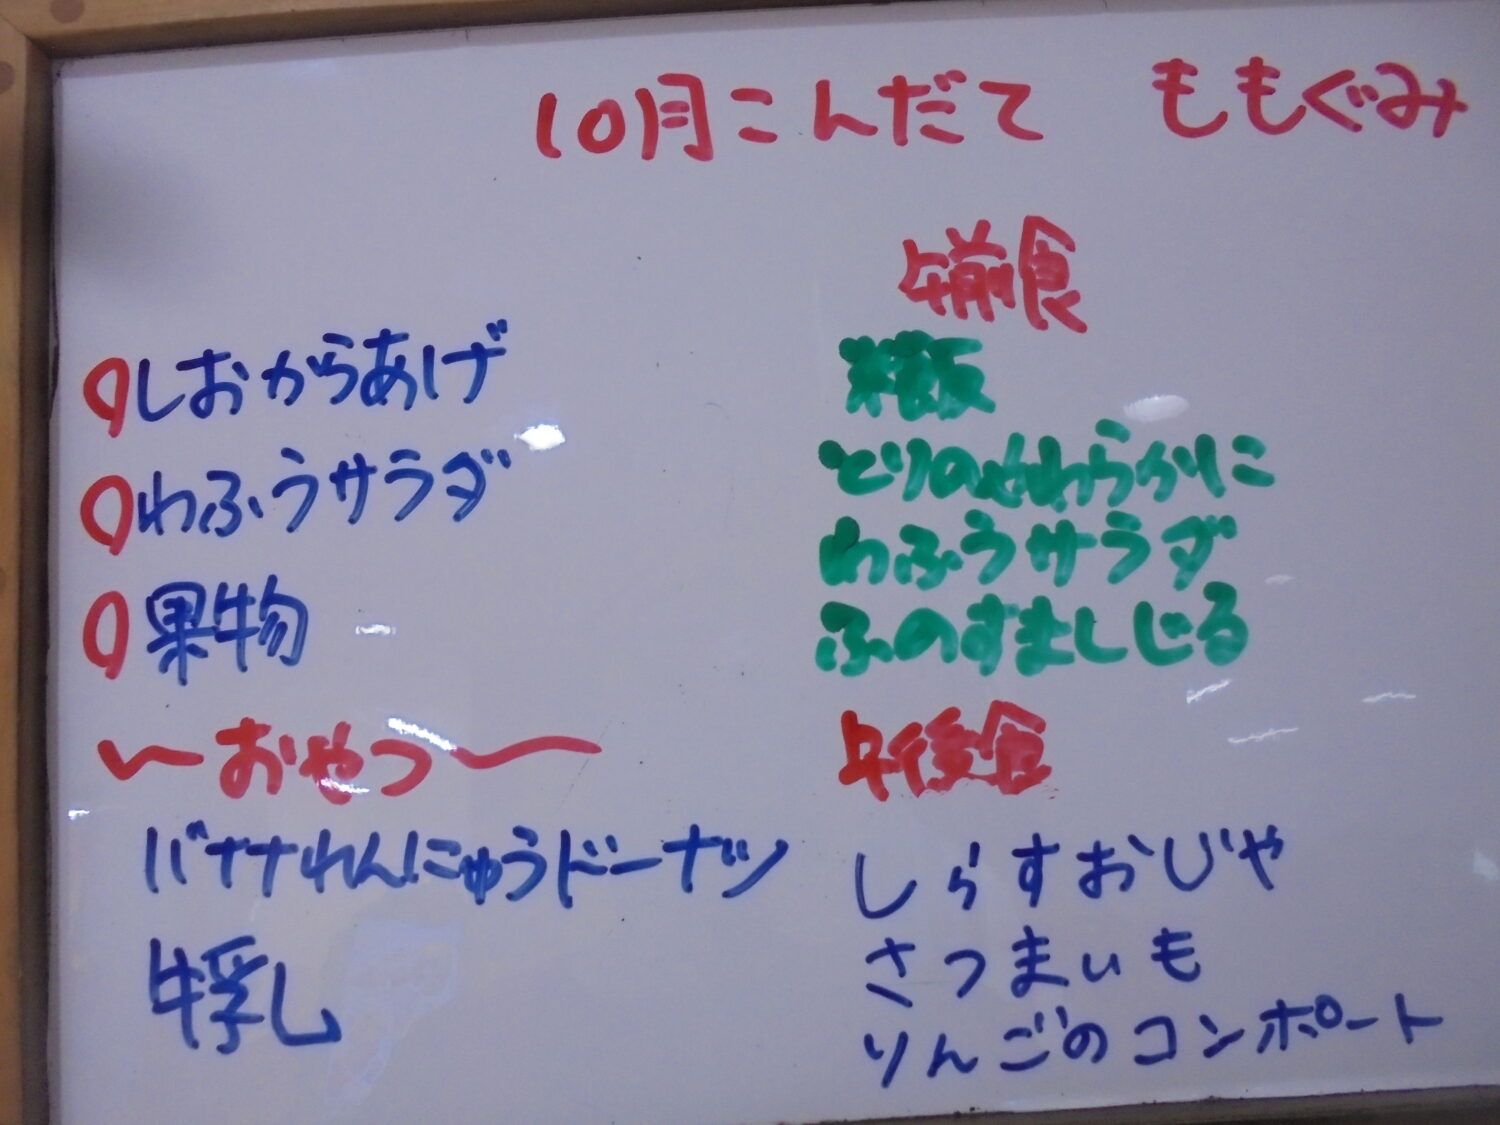 10月こんだて ももぐみ
しおからあげ
わふうサラダ
果物
〜おやつ〜
バナナれんにゅうドーナツ
牛乳
午前食
軟飯
とりのやわらかに
わふうサラダ
ふのすましじる
午後食
しらすおじや
さつまいも
りんごのコンポート